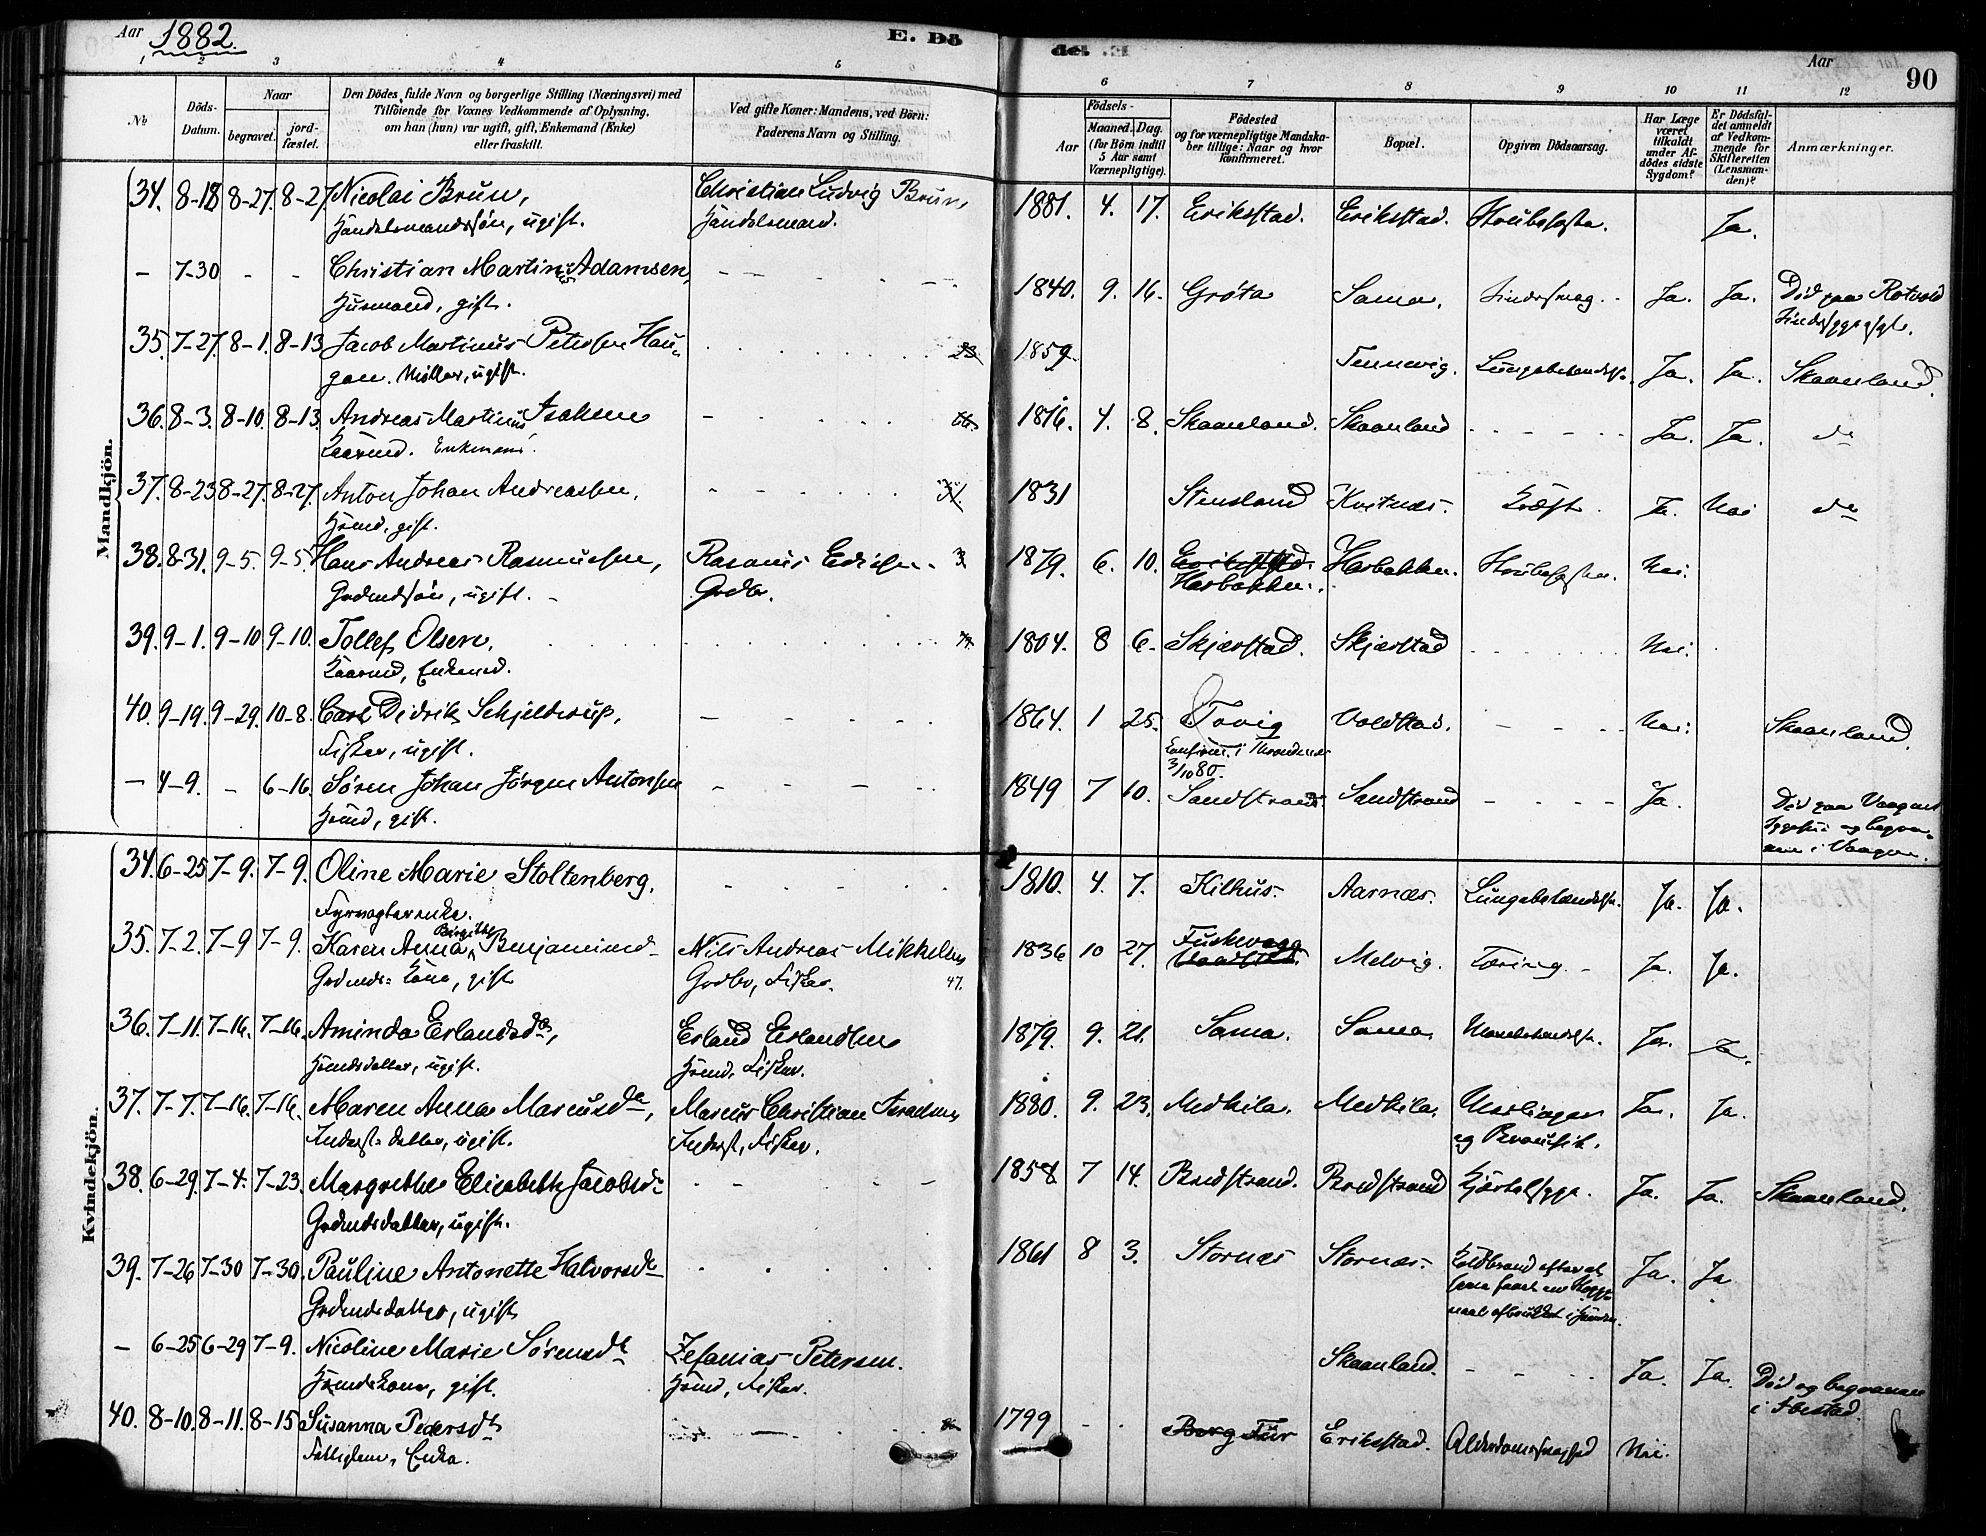 Aar 1882.
E. Dö
de. E.
Aar
90
1 2 3 4 5 6 7 8 9 10 11 12
No
Döds-Datum.
Naar
begravet.
jord-fæstet.
Den Dödes fulde Navn og borgerlige Stilling (Næringsvei) med
Tilföiende for Voxnes Vedkommende af Oplysning,
om han (hun) var ugift, gift, Enkemand (Enke)
eller fraskilt.
Ved gifte Koner: Mandens, ved Börn:
Faderens Navn og Stilling.
Födsels-
Aar
Maaned. Dag.
(for Börn indtil
5 Aar samt
Værnepligtige).
Födested
og for værnepligtige Mandska-
ber tillige: Naar og hvor
konfirmeret.
Bopæl.
Opgiven Dödsaarsag.
Har Læge
været
tilkaldt
under Af-
dödes sidste
Sygdom?
Er Dödsfal-
det anmeldt
af Vedkom-
mende for
Skifteretten
(Lensman-
den)?
Anmærkninger.
Mandkjön.
34. 8-18 8-27. 8-27 Nicolai Brun, Christian Ludvig Brun, 1881. 4. 17. Erikstad. Erikstad. Strubehoste. Ja.
Handelsmandssøn, ugift. Handelsmand.
- 7-30 - - Christian Martin Adamsen, 1840. 9. 16. Grøta Sama. Sindssvag. Ja. Ja. Død paa Rotvold
Husmand, gift. Sindssygeasyl.
35. 7-27. 8-1. 8-13 Jacob Martinus Petersen Hau- 1859. Tennevig. Lungebetændelse. Ja. Ja. Skaanland.
gen. Møller, ugift.
36. 8-3. 8-10. 8-13. Andreas Martinus Isaksen 1816. 4. 8. Skaanland. Skaanland Ja. Ja. do
Kaarmd. Enkemand.
37. 8-23 8-27. 8-27. Anton Johan Andreassen, 1831 Stensland Kvitnes. Kræft. Ja. Nei do
Hsmd, gift.
38. 8-31. 9-5. 9-5. Hans Andreas Rasmussen, Rasmus Edisen. 3 1879. 6. 10. Erikstad. Harbakken. Strubehosten. Nei.
Grdmdsøn, ugift. Grdbr. Harbakken.
39. 9-1. 9-10 9-10. Tollef Olsen, 1804. 8 6. Skjærstad. Skjærstad Nei.
Kaarmd, Enkemd.
40. 9-19. 9-29. 10-8. Carl Didrik Schjelderup, 1864. 1 25. Tovig Voldstad. Nei. Skaanland.
Fisker, ugift. Konfirm. i Throndenes
3/10 80.
- 4-9. - 6-16. Søren Johan Jørgen Antonsen 1849 7 10. Sandstrand Sandstrand Ja. Død paa Vaagans
Hsmd, gift. Sygehus og begra-
ven i Vaagan.
Kvindekjön.
34. 6-25 7-9. 7-9. Oline Marie Stoltenberg. 1810. 4. 7. Kilhus. Aarnæs. Lungebetændelse. Ja. Ja.
Fyrvogterenke.
Birgitte
35. 7-2. 7-9 7-9. Karen Anna Benjaminsd- Nils Andreas Mikkelsen 1836 10 27. Fuskevaag Melvig. Tæring. Ja. Ja.
Grdmds-Kone, gift Grdbr, Fisker. 47.
36. 7-11. 7-16. 7-16. Aminda Erlandsdr, Erland Erlandsen 1879. 9. 21. Sama. Sama. Ja. Ja.
Hsmdsdatter, ugift. Hsmd. Fisker.
37. 7-7. 7-16. 7-16. Maren Anna Marcusdr, Marcus Christian Israelsen 1880. 9. 23. Medkila. Medkila. Meslinger Ja. Ja.
Inderst-datter, ugift. Inderst, Fisker. og Bronkit.
38. 6-29. 7-4. 7-23. Margrethe Elisabeth Jacobsdr 1858 7 14. Bredstrand. Bredstrand Kjertelsyge. Ja. Ja. Skaanland.
Grdmdsdatter, ugift.
39. 7-26 7-30 7-30. Pauline Antonette Halvorsdr 1861 8 3. Stornæs Stornæs. Koldbrand efter at Ja. Ja
Grdmdsdatter, ugift
- 6-25 6-29 7-9. Nicoline Marie Sørensdr Zefanias Petersen. Skaanland. Ja. Ja. Død og begraven
Hsmdskone, gift. Hsmd, Fisker. i Ibestad.
40. 8-10. 8-11. 8-15 Susanna Pedersdr 1799 Borg Fur Erikstad. Alderdomssvaghed Nei.
Fattiglem, Enke.